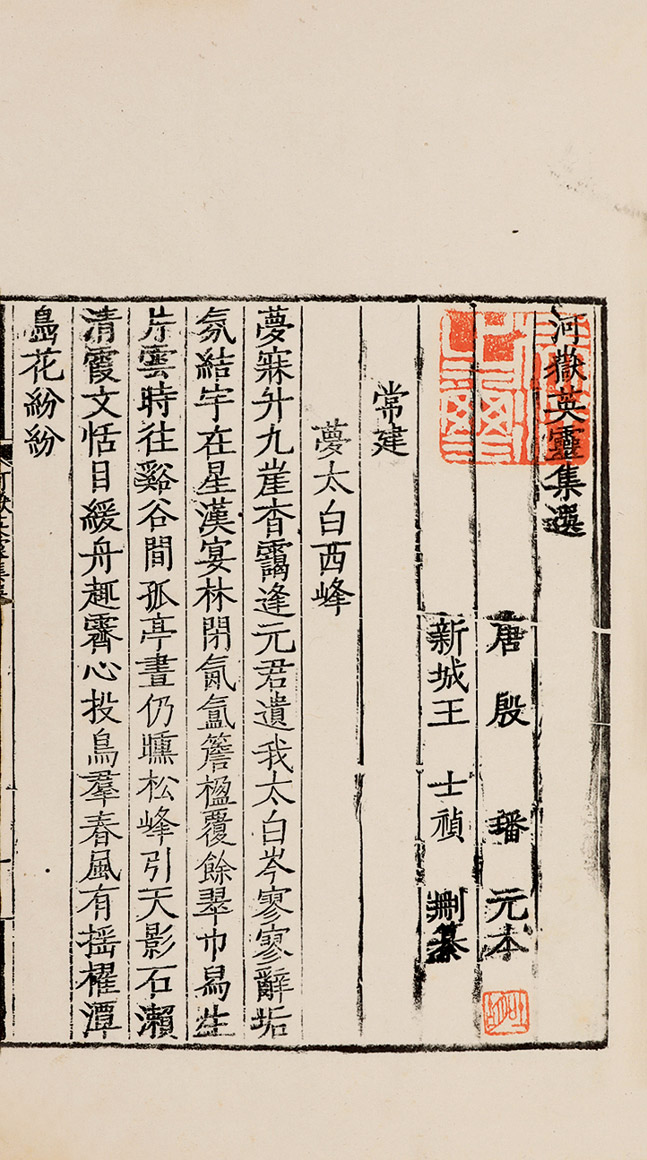 河嶽英靈集選
唐 殷 璠 元本
新城王 士禎 刪纂
常建
夢太白西峰
夢寐升九崖杳靄逢元君遺我太白岑寥寥辭垢
氛結宇在星漢宴林閉氤氳簷楹覆餘翠巾舄生
片雲時往谿谷間孤亭晝仍曛松峰引天影石瀨
清霞文恬目緩舟趣霽心投鳥羣春風有揺櫂潭
島花紛紛